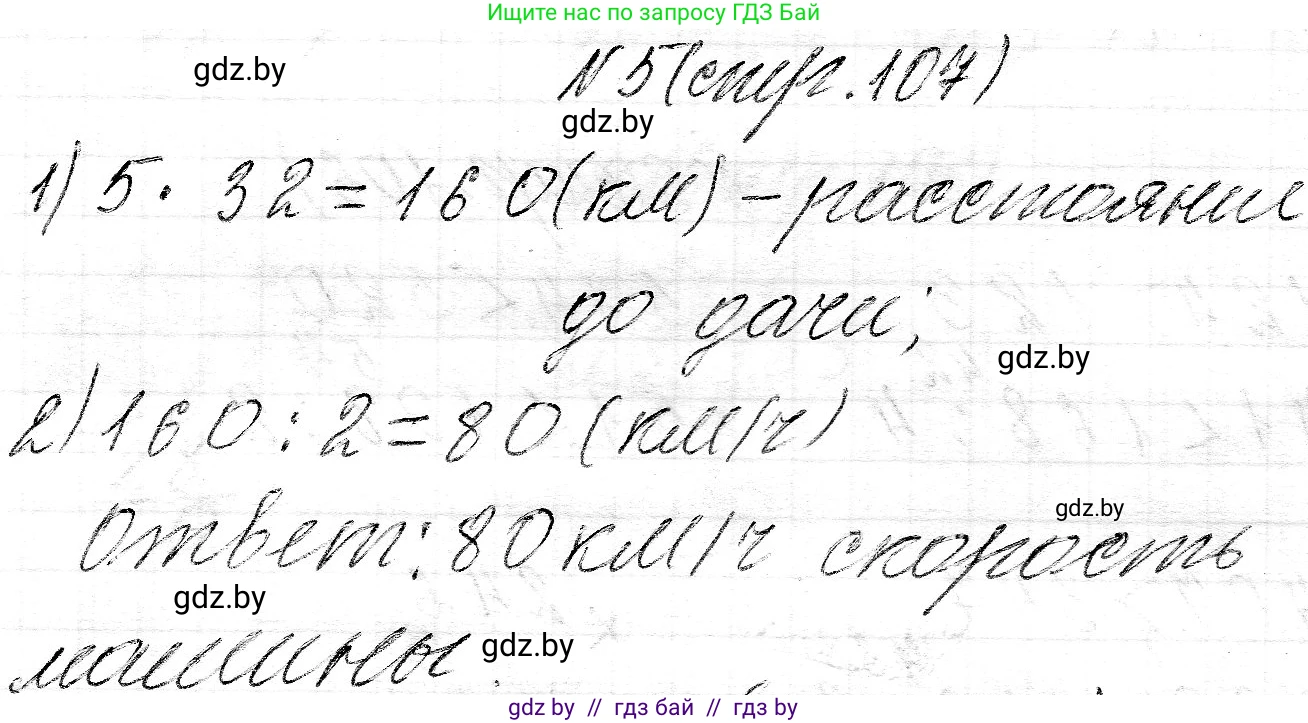 Ищите нас по запросу ГДЗ Бай
gdz.by
N 5 (стр. 107)
gdz.by
1) 5 · 32 = 160 (км) – расстояние
до дачи;
gdz.by
2) 160 : 2 = 80 (км/ч)
gdz.by
Ответ: 80 км/ч скорость
gdz.by
машины.
gdz.by
gdz.by // гдз бай // гдз by